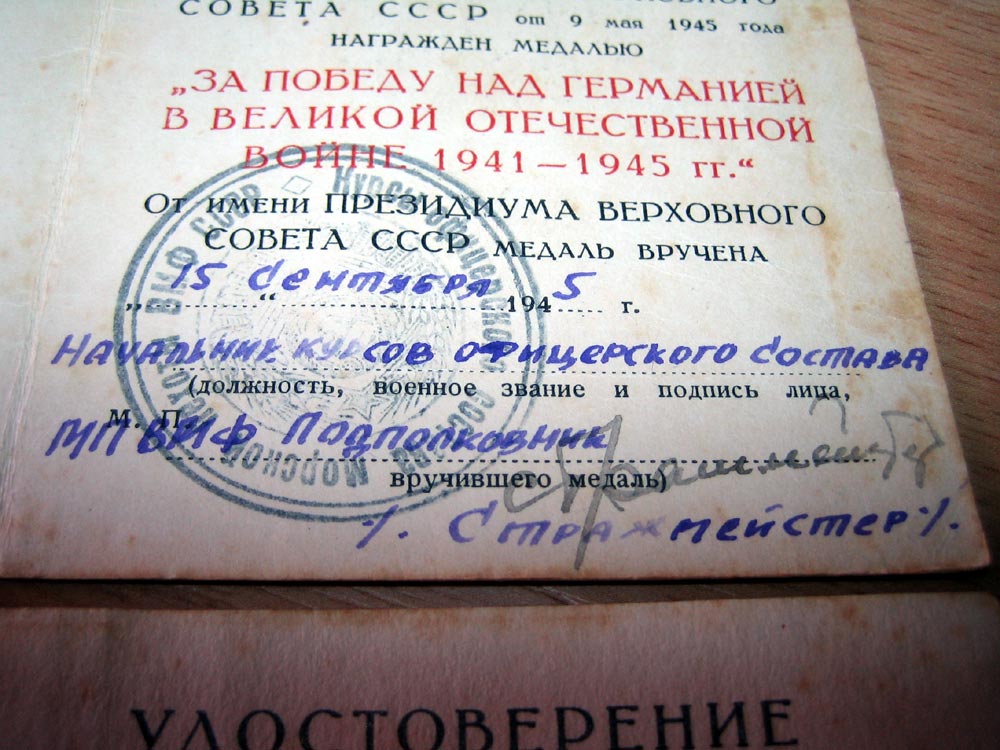 СОВЕТА СССР от 9 мая 1945 года
НАГРАЖДЕН МЕДАЛЬЮ
„ЗА ПОБЕДУ НАД ГЕРМАНИЕЙ
В ВЕЛИКОЙ ОТЕЧЕСТВЕННОЙ
ВОЙНЕ 1941—1945 гг.“
От имени ПРЕЗИДИУМА ВЕРХОВНОГО
СОВЕТА СССР МЕДАЛЬ ВРУЧЕНА
„15“ Сентября 1945 г.
Начальник курсов офицерского состава
(должность, военное звание и подпись лица,
М. П.
МП ВМФ Подполковник
вручившего медаль)
/. Стражмейстер /.
Курсы офицерского состава Морской пехоты ВМФ СССР
УДОСТОВЕРЕНИЕ